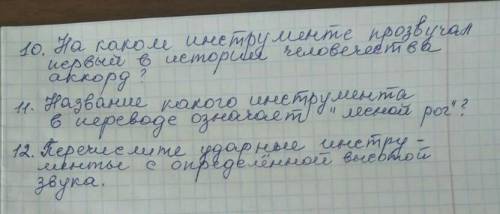 10. На каком инструменте прозвучал
первый в истории человечества
аккорд?
11. Название какого инструмента
в переводе означает "лесной рог"?
12. Перечислите ударные инстру-
менты с определённой высотой
звука.